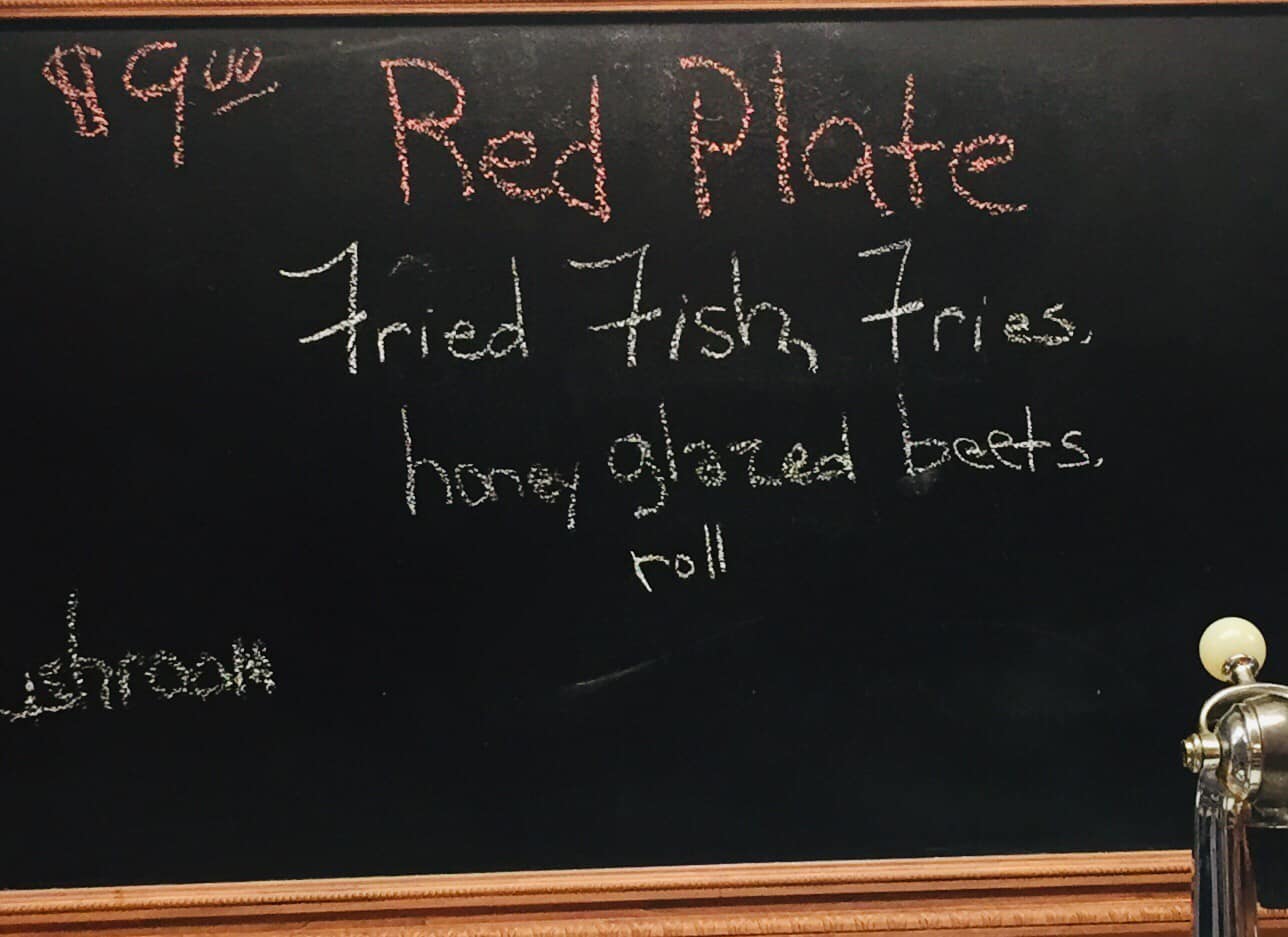 $9.00 Red Plate
Fried Fish, Fries,
honey glazed beets,
roll
ushroom